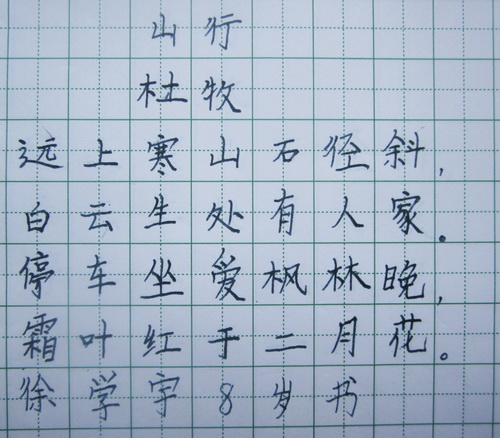 山行
杜牧
远上寒山石径斜,
白云生处有人家。
停车坐爱枫林晚,
霜叶红于二月花。
徐学宇8岁书